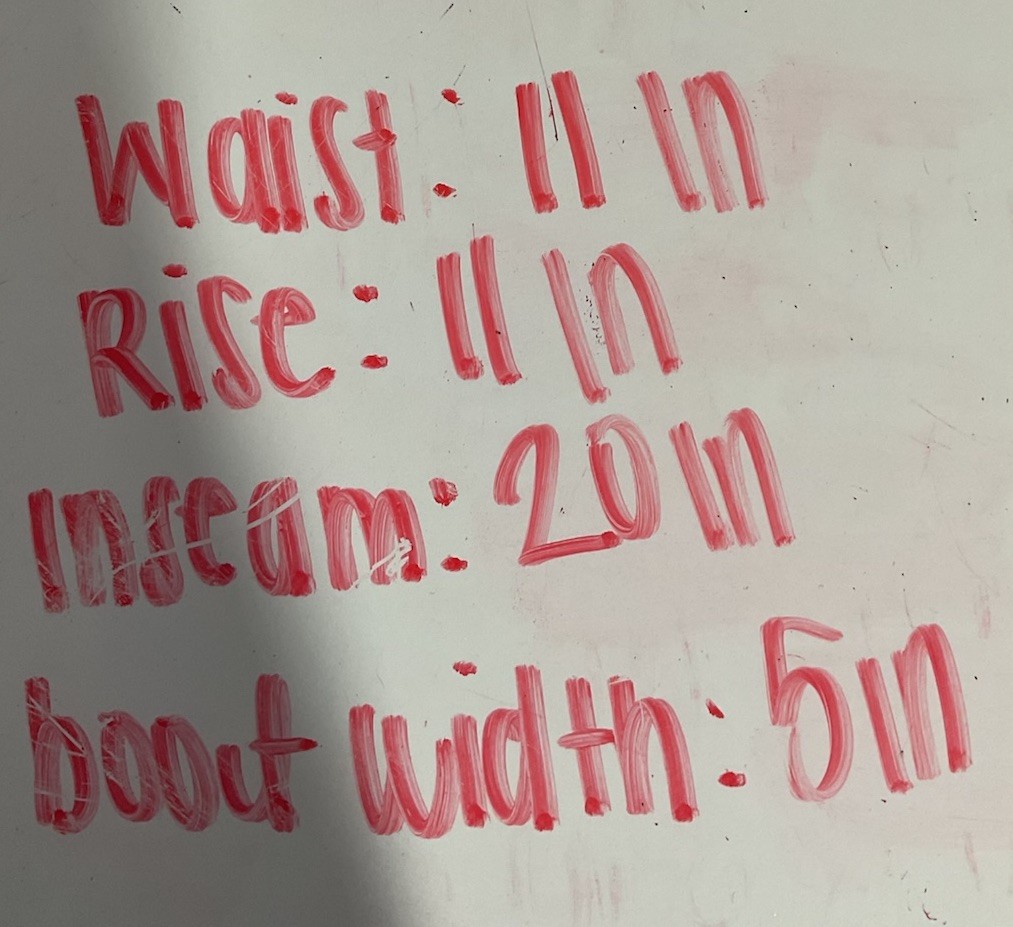 Waist: 11 in
Rise: 11 in
Inseam: 20 in
boout width: 5 in